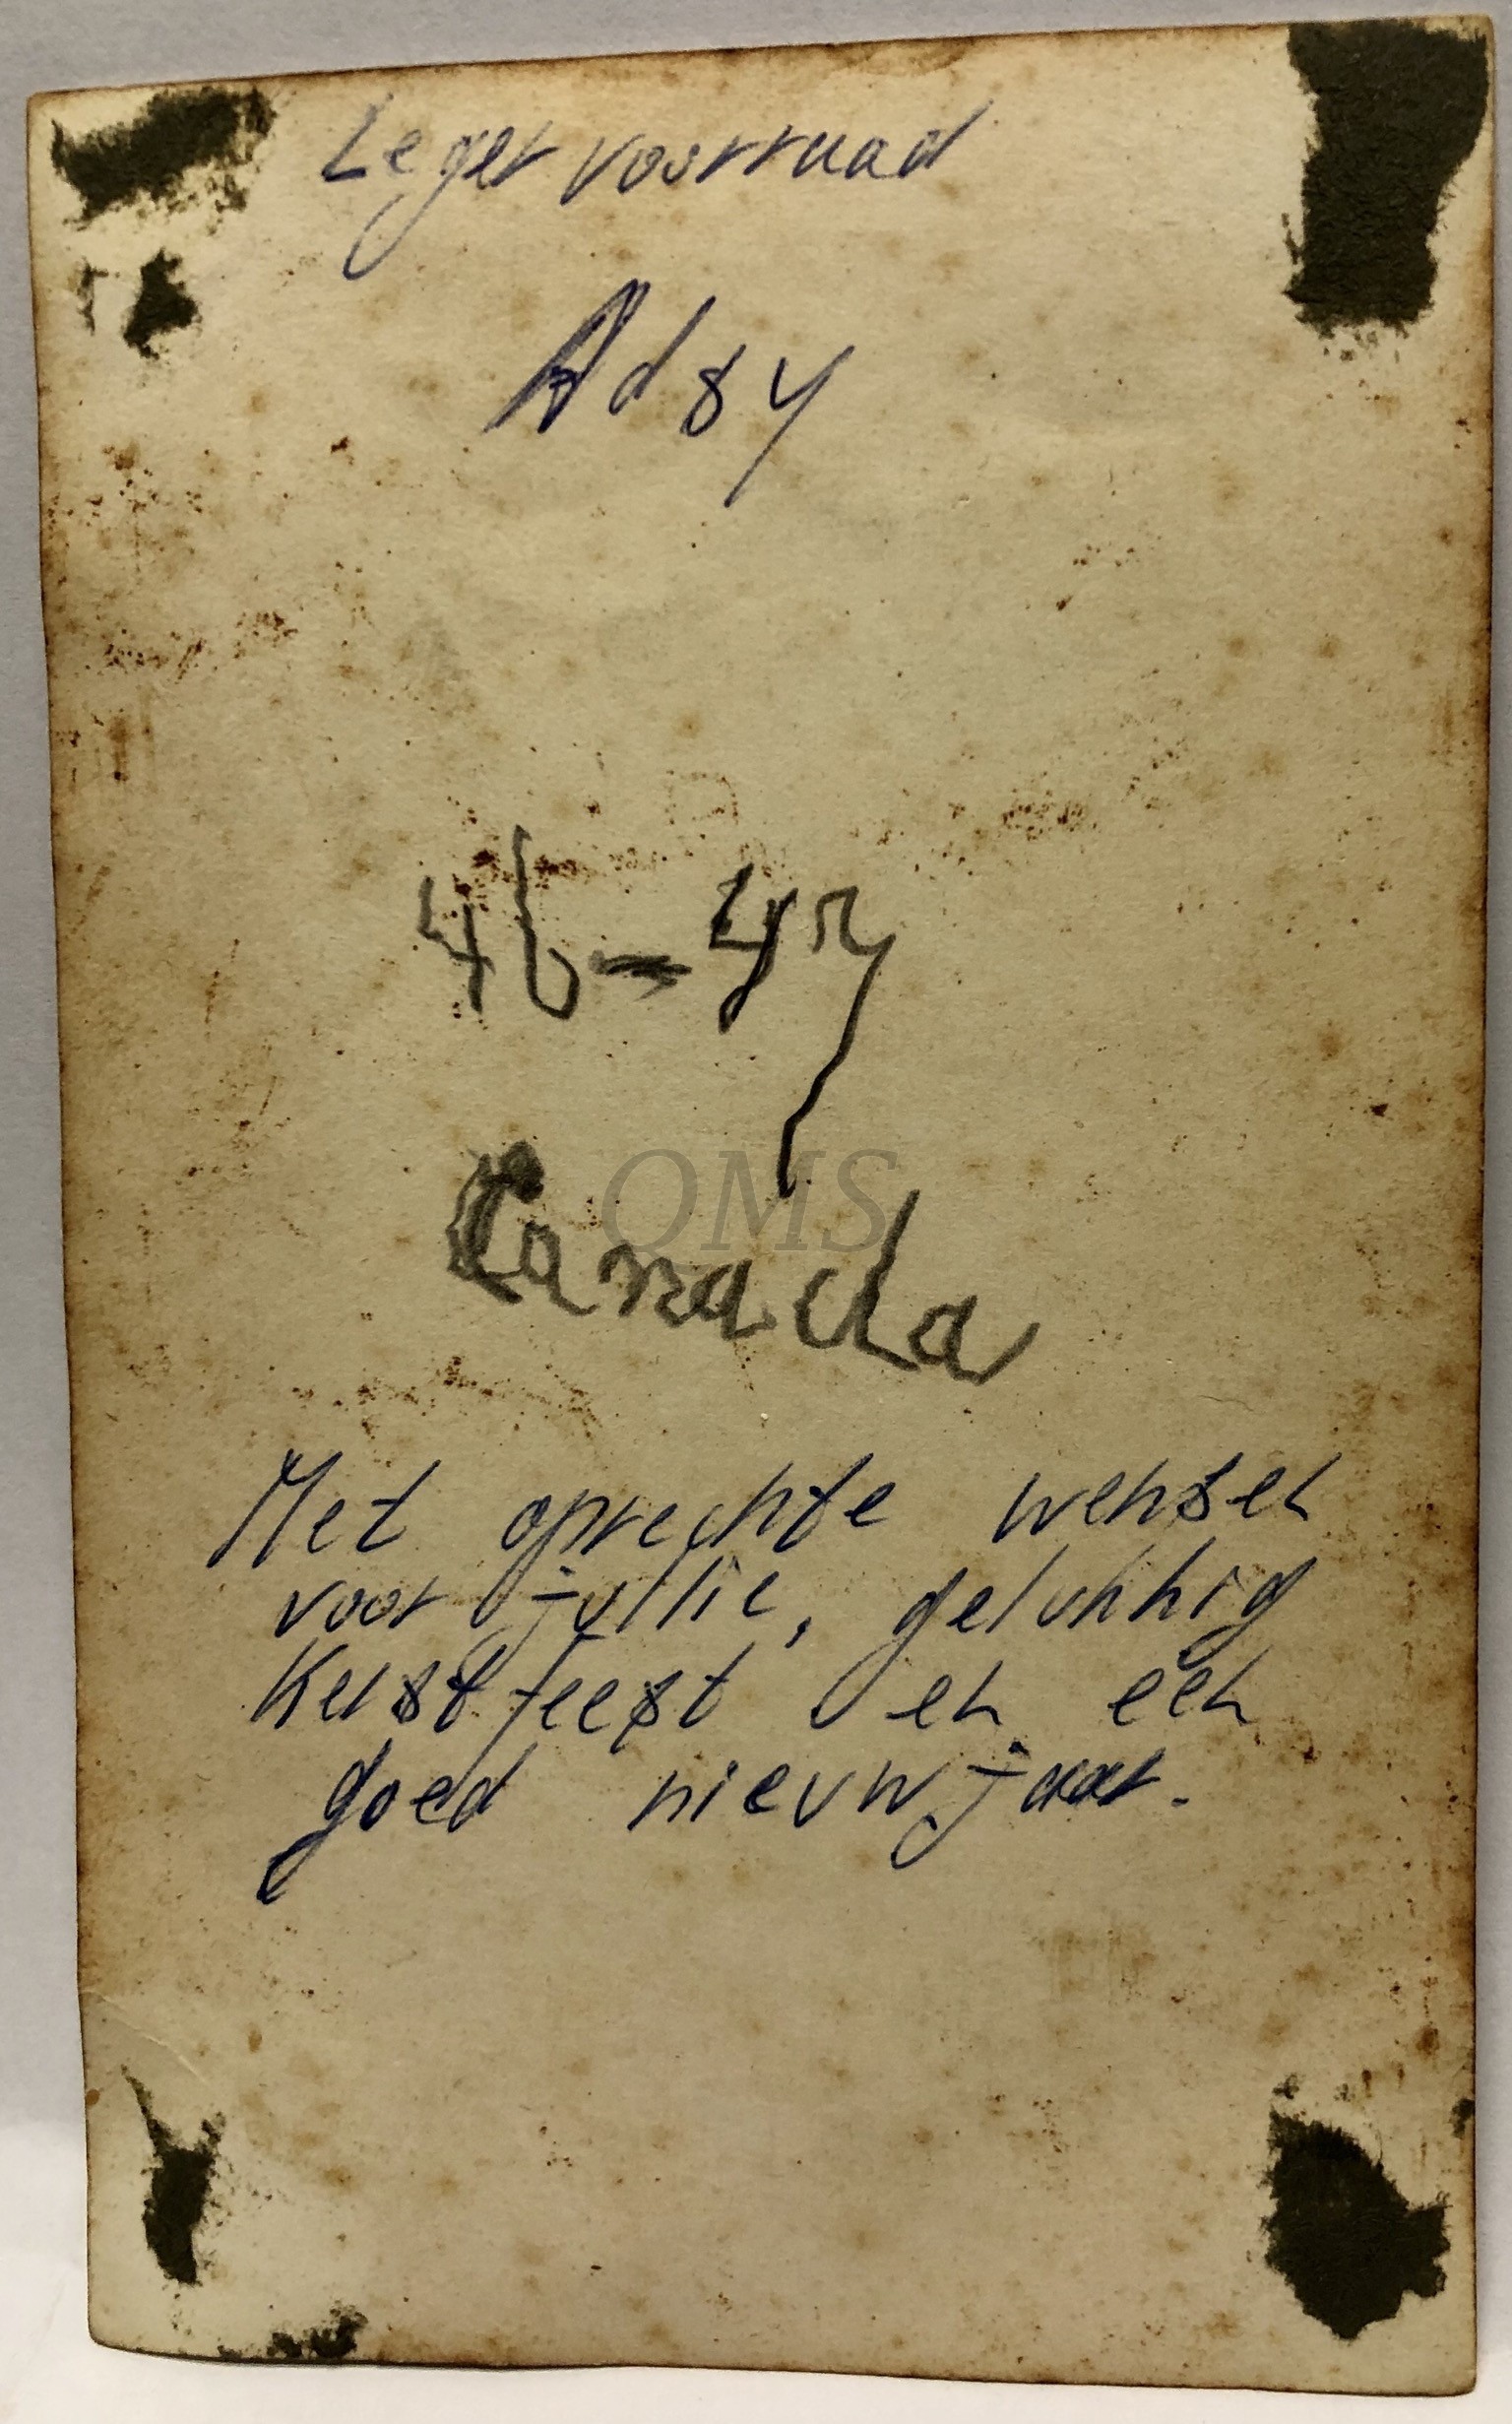 Leger voorraad
Adsy
46-47
QMS
Canada
Met oprechte wensen
voor jullie, gelukkig
Kerstfeest en een
goed nieuwjaar.